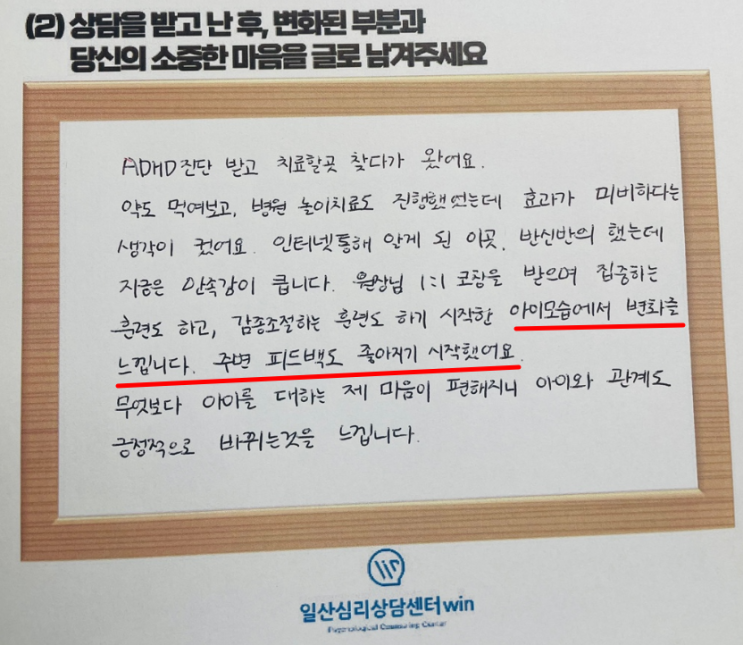 (2) 상담을 받고 난 후, 변화된 부분과
당신의 소중한 마음을 글로 남겨주세요
ADHD 진단 받고 치료할곳 찾다가 왔어요.
약도 먹여보고, 병원 놀이치료도 진행했었는데 효과가 미비하다는
생각이 컸어요. 인터넷통해 알게 된 이곳. 반신반의 했는데
지금은 만족감이 큽니다. 원장님 1:1 코칭을 받으며 집중하는
훈련도 하고, 감정조절하는 훈련도 하기 시작한 아이모습에서 변화를
느낍니다. 주변 피드백도 좋아지기 시작했어요.
무엇보다 아이를 대하는 제 마음이 편해지니 아이와 관계도
긍정적으로 바뀌는것을 느낍니다.
일산심리상담센터win
Psychological Counseling Center